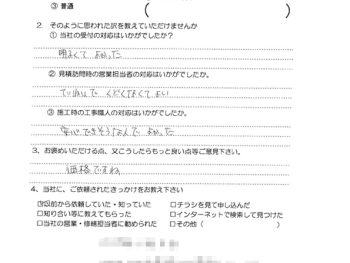 ③ 普通 ( )
2. そのように思われた訳を教えていただけませんか
① 当社の受付の対応はいかがでしたか？
明るくて よかった
② 見積訪問時の営業担当者の対応はいかがでしたか。
ていねいで くどくなくてよい
③ 施工時の工事職人の対応はいかがでしたか？
安心できそうなんで よかった
3、お褒めいただける点、又こうしたらもっと良い点等ご意見下さい。
価格ですね
4、当社に、ご依頼されたきっかけをお教え下さい
☑以前から依頼していた・知っていた □チラシを見て申し込んだ
□知り合い等に教えてもらった □インターネットで検索して見つけた
□当社の営業・修繕担当者に勧められた □その他（ ）